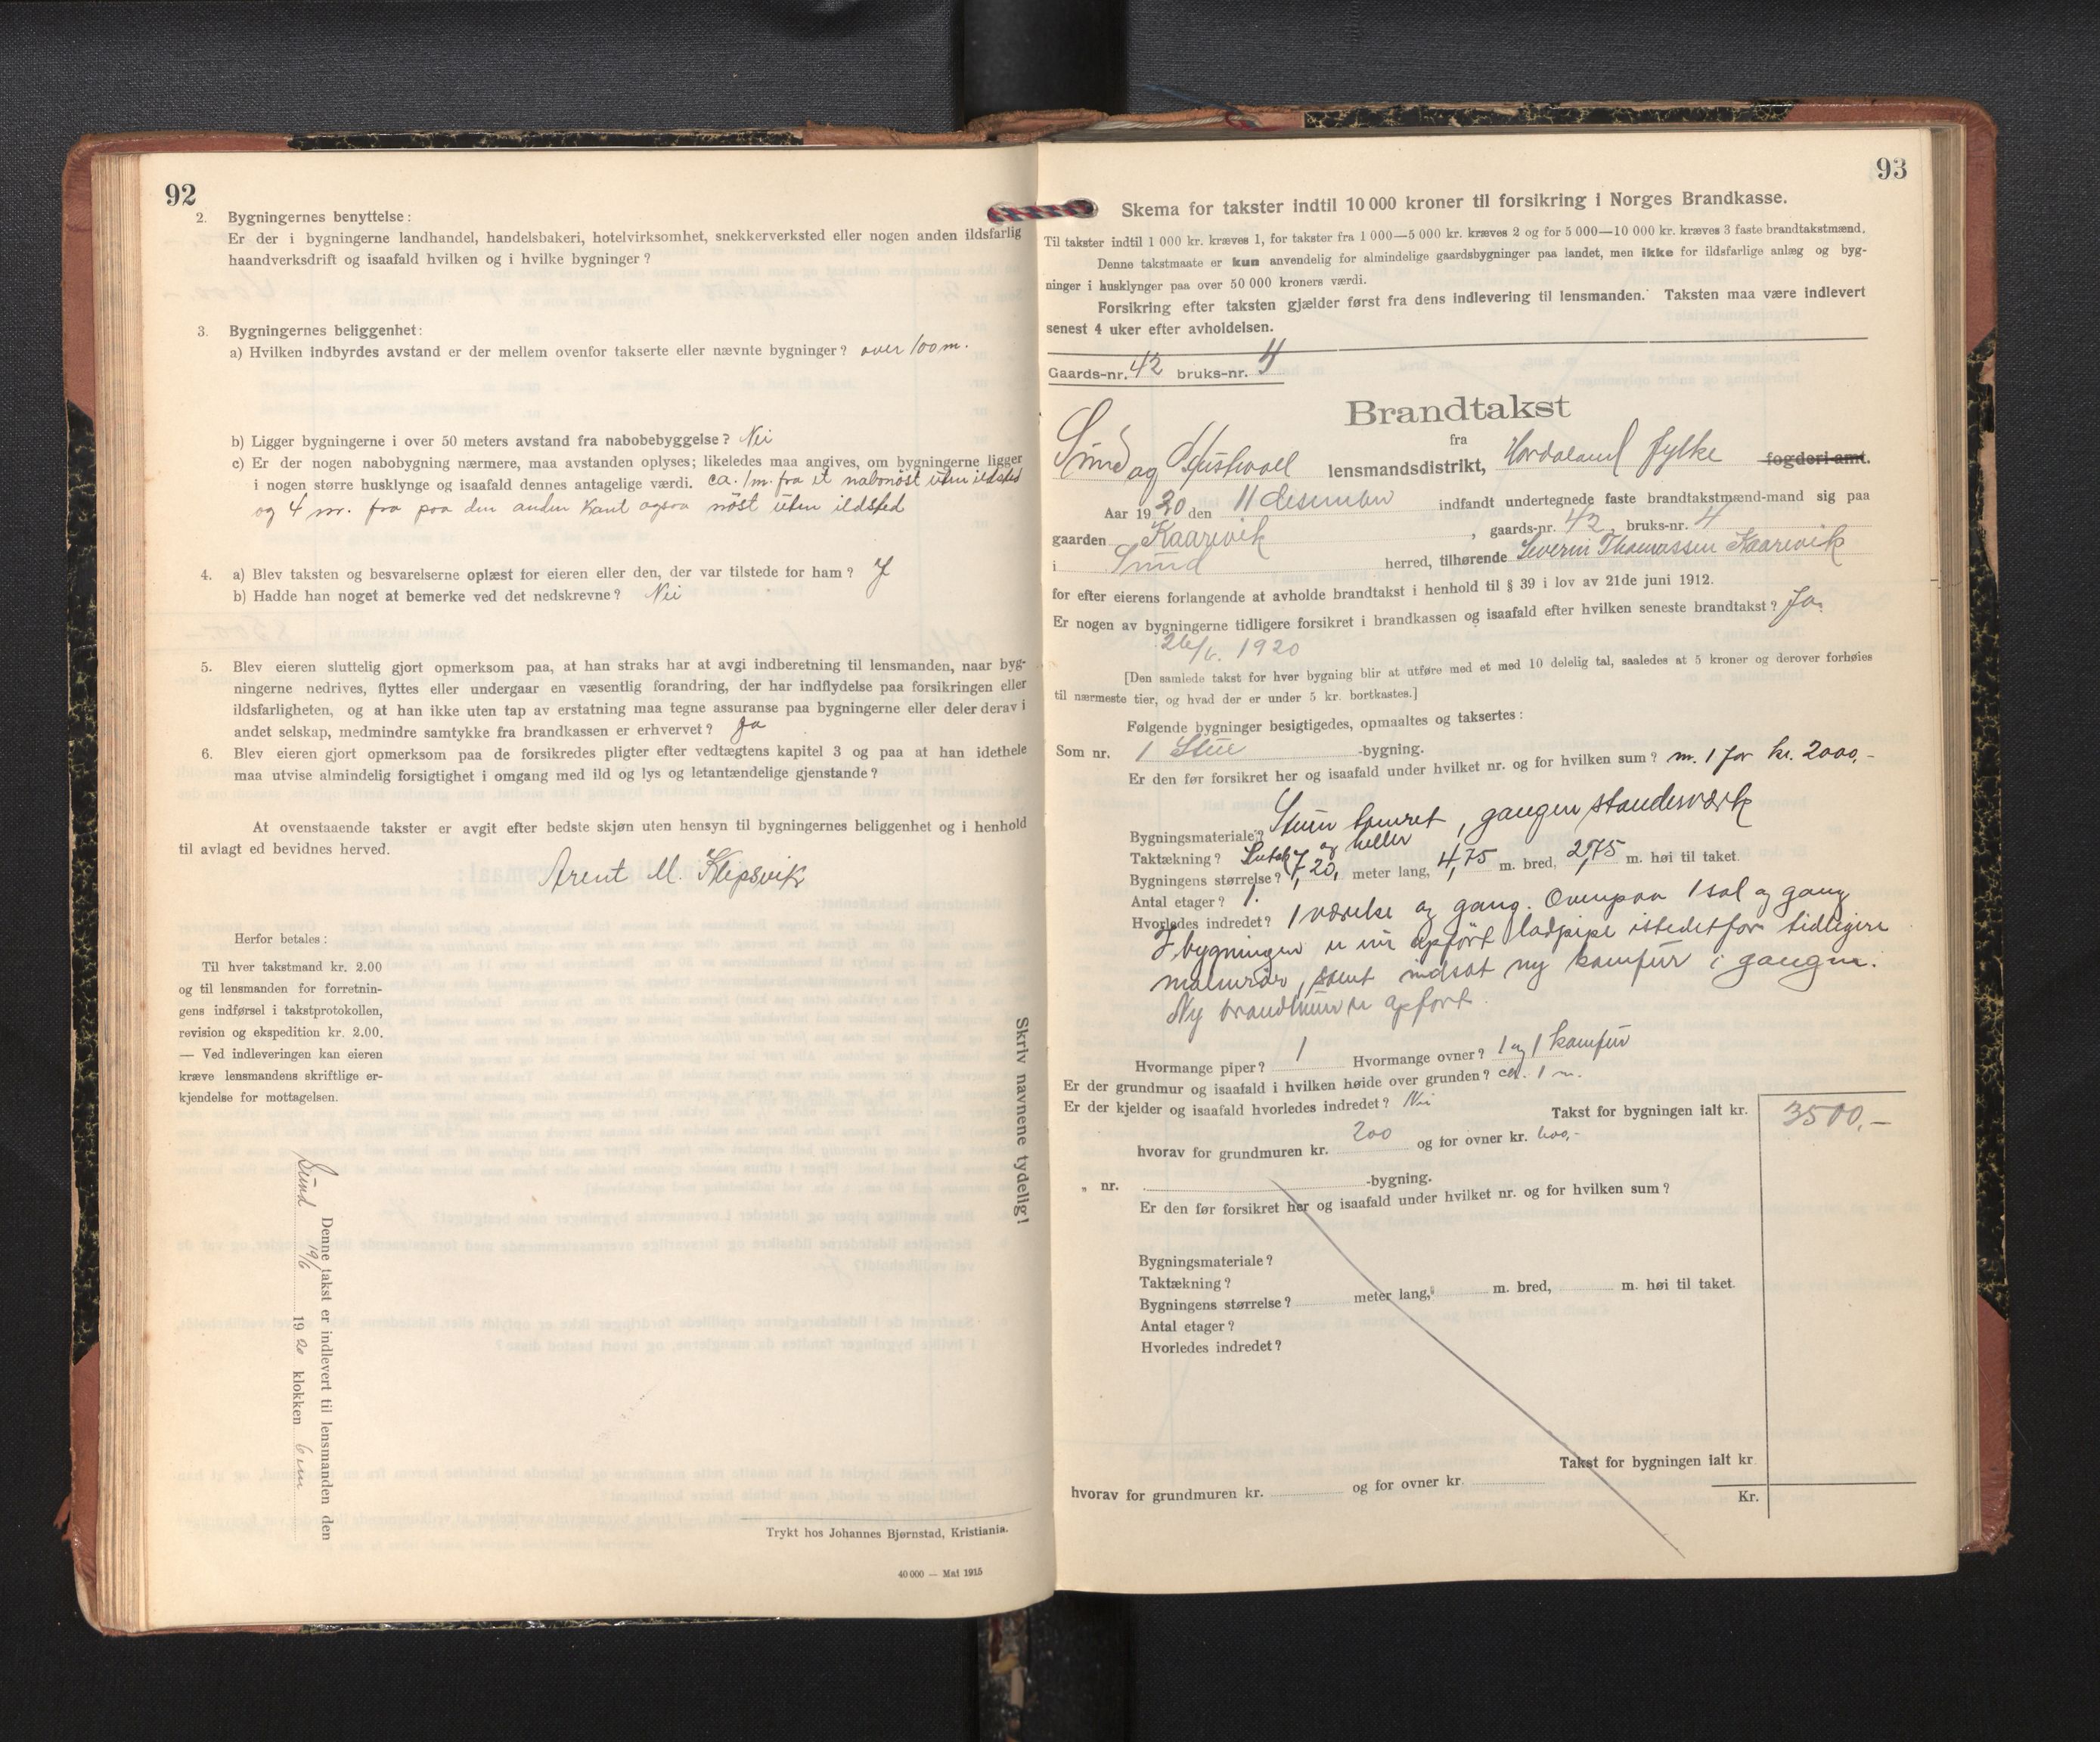 92
2. Bygningernes benyttelse:
Er der i bygningerne landhandel, handelsbakeri, hotelvirksomhet, snekkerverksted eller nogen anden ildsfarlig
haandverksdrift og isaafald hvilken og i hvilke bygninger?
3. Bygningernes beliggenhet:
a) Hvilken indbyrdes avstand er der mellem ovenfor takserte eller nævnte bygninger? over 100 m.
b) Ligger bygningerne i over 50 meters avstand fra nabobebyggelse? Nei
c) Er der nogen nabobygning nærmere, maa avstanden oplyses; likeledes maa angives, om bygningerne ligger
i nogen større husklynge og isaafald dennes antagelige værdi. ca. 1 m. fra et nabonöst uten ildsted
og 4 m. fra paa den anden kant ogsaa nöst uten ildsted
4. a) Blev taksten og besvarelserne oplæst for eieren eller den, der var tilstede for ham? J
b) Hadde han noget at bemerke ved det nedskrevne? Nei
5. Blev eieren sluttelig gjort opmerksom paa, at han straks har at avgi indberetning til lensmanden, naar byg-
ningerne nedrives, flyttes eller undergaar en væsentlig forandring, der har indflydelse paa forsikringen eller
ildsfarligheten, og at han ikke uten tap av erstatning maa tegne assuranse paa bygningerne eller deler derav i
andet selskap, medmindre samtykke fra brandkassen er erhvervet? Ja
6. Blev eieren gjort opmerksom paa de forsikredes pligter efter vedtægtens kapitel 3 og paa at han idethele
maa utvise almindelig forsigtighet i omgang med ild og lys og letantændelige gjenstande?
At ovenstaaende takster er avgit efter bedste skjøn uten hensyn til bygningernes beliggenhet og i henhold
til avlagt ed bevidnes herved.
Arent M. Klepsvik
Herfor betales:
Til hver takstmand kr. 2.00
og til lensmanden for forretnin-
gens indførsel i takstprotokollen,
revision og ekspedition kr. 2.00.
— Ved indleveringen kan eieren
kræve lensmandens skriftlige er-
kjendelse for mottagelsen.
Skriv navnene tydelig!
Denne takst er indlevert til lensmanden den
Sund 19/6 1920 klokken 6 em
Trykt hos Johannes Bjørnstad, Kristiania.
40 000 — Mai 1915
93
Skema for takster indtil 10 000 kroner til forsikring i Norges Brandkasse.
Til takster indtil 1 000 kr. kræves 1, for takster fra 1 000—5 000 kr. kræves 2 og for 5 000—10 000 kr. kræves 3 faste brandtakstmænd.
Denne takstmaate er kun anvendelig for almindelige gaardsbygninger paa landet, men ikke for ildsfarlige anlæg og byg-
ninger i husklynger paa over 50 000 kroners værdi.
Forsikring efter taksten gjælder først fra dens indlevering til lensmanden. Taksten maa være indlevert
senest 4 uker efter avholdelsen.
Gaards-nr. 42 bruks-nr. 4
Brandtakst
fra
Sund og Austevoll lensmandsdistrikt, Hordaland fylke fogderi-amt.
Aar 1920 den 11 desember indfandt undertegnede faste brandtakstmænd-mand sig paa
gaarden Kaarevik, gaards-nr. 42, bruks-nr. 4
i Sund herred, tilhørende Severin Thomassen Kaarevik
for efter eierens forlangende at avholde brandtakst i henhold til § 39 i lov av 21de juni 1912.
Er nogen av bygningerne tidligere forsikret i brandkassen og isaafald efter hvilken seneste brandtakst? Ja.
26/6. 1920
[Den samlede takst for hver bygning blir at utføre med et med 10 delelig tal, saaledes at 5 kroner og derover forhøies
til nærmeste tier, og hvad der er under 5 kr. bortkastes.]
Følgende bygninger besigtigedes, opmaaltes og taksertes:
Som nr. 1 Stue -bygning.
Er den før forsikret her og isaafald under hvilket nr. og for hvilken sum? m. 1 for kr. 2000,-
Bygningsmateriale? Stuen tømret, gangen standesværk
Taktækning? og heller
Bygningens størrelse? 7,20, meter lang, 4,75 m. bred, 2,75 m. høi til taket.
Antal etager? 1.
Hvorledes indredet? 1 værelse og gang. Ovenpaa 1 sal og gang
I bygningen er nu opført ladpipe istedetfor tidligere
malmrör, samt indsat ny komfur i gangen.
Ny brandmur er opført.
Hvormange piper? 1 Hvormange ovner? 1 og 1 komfur
Er der grundmur og isaafald i hvilken høide over grunden? ca. 1 m.
Er der kjelder og isaafald hvorledes indredet? Nei
Takst for bygningen ialt kr. 3500,-
hvorav for grundmuren kr. 200 og for ovner kr. 600,-
„ nr. -bygning.
Er den før forsikret her og isaafald under hvilket nr. og for hvilken sum?
Bygningsmateriale?
Taktækning?
Bygningens størrelse? meter lang, m. bred, m. høi til taket.
Antal etager?
Hvorledes indredet?
Takst for bygningen ialt kr.
hvorav for grundmuren kr. og for ovner kr.
Kr.